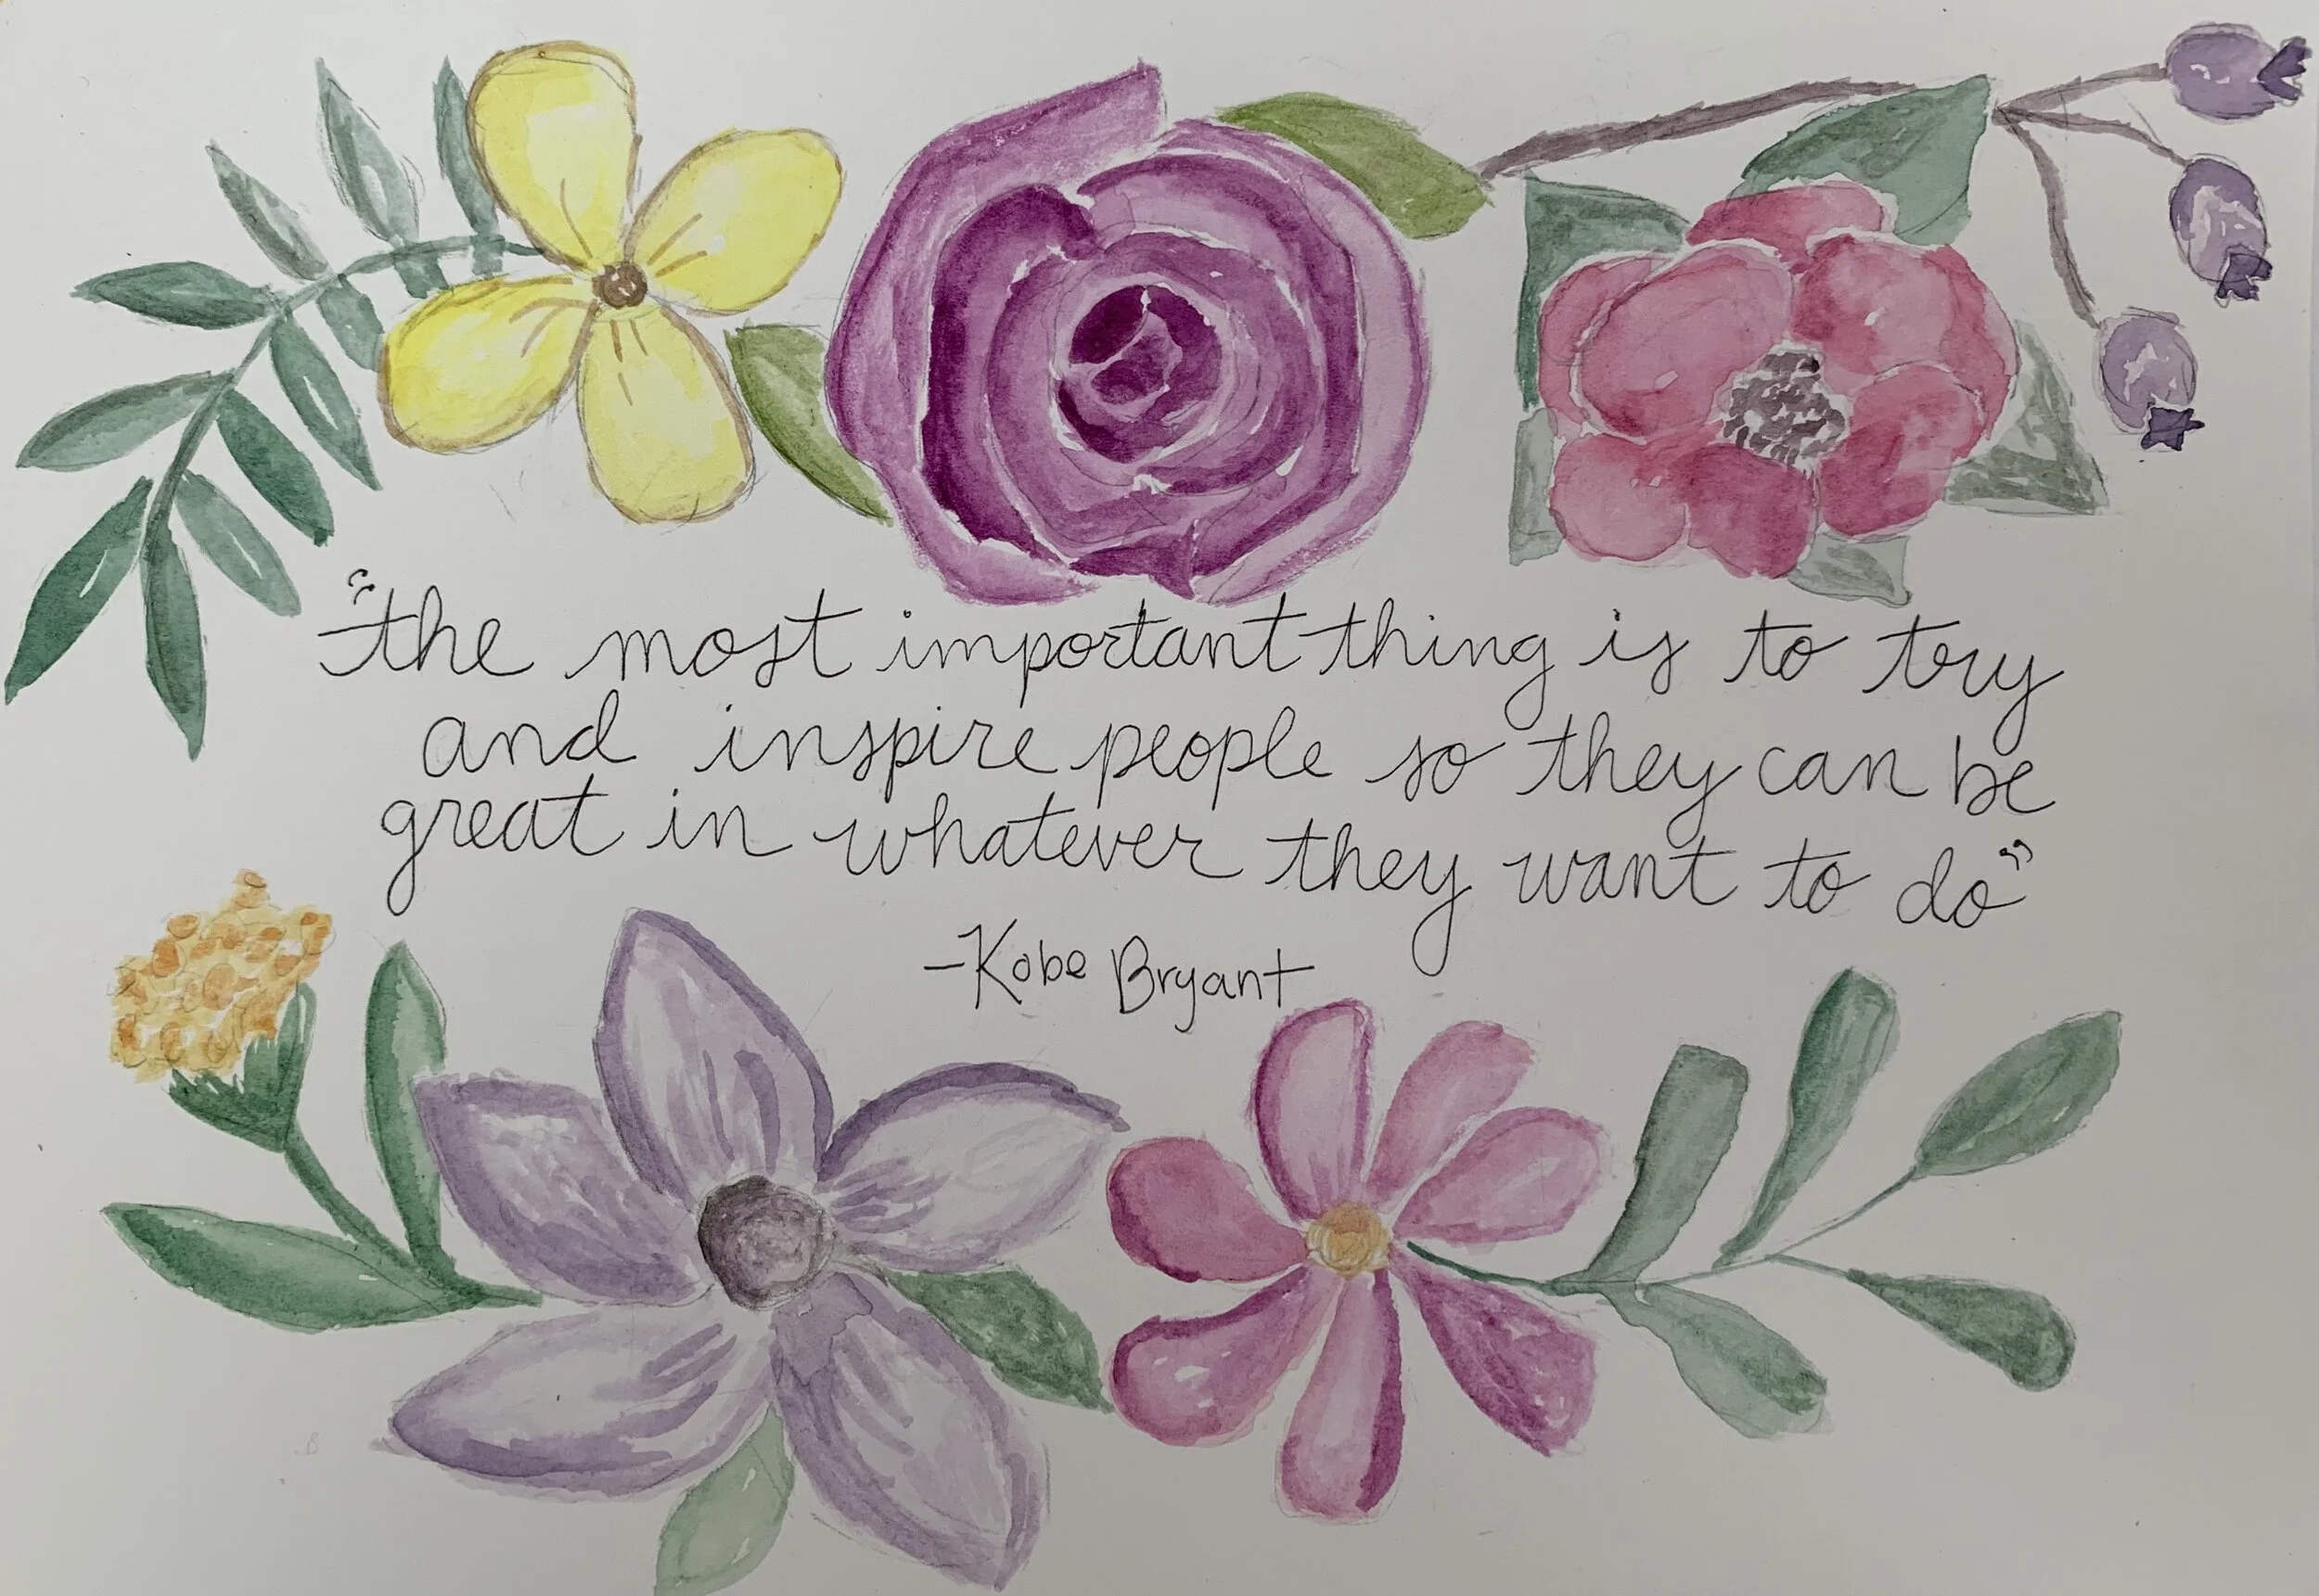 "the most important thing is to try
and inspire people so they can be
great in whatever they want to do"
-Kobe Bryant